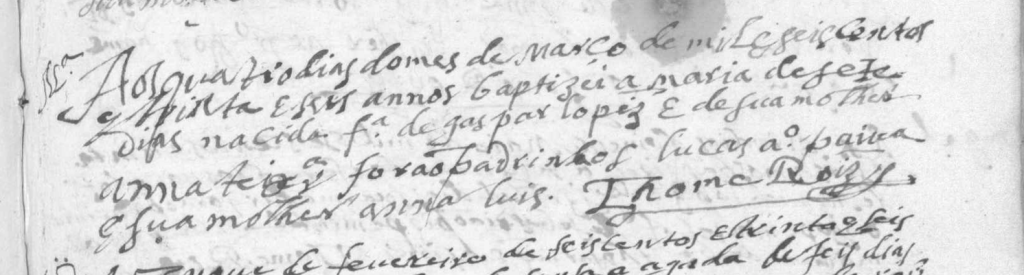 Aos quatro dias do mes de Março de mil e seis centos
e trinta e seis annos baptizei a maria de sete
Dias nacida fª de gaspar lopez E de sua molher
anna teixrª forão padrinhos lucas aº paiva
e sua molher anna luis. Thome Roiz
de fevereiro de seis centos e trinta e seis
de seis dias